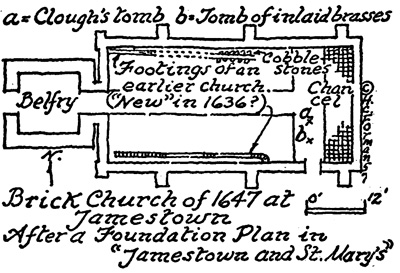 a = Clough's tomb b = Tomb of inlaid brasses
Cobble-
stones
Footings of an
earlier church
("New" in 1636?)
Belfry
Chan
cel
a x
b x
N.
0' 12'
Brick Church of 1647 at
Jamestown
After a Foundation Plan in
"Jamestown and St. Mary's"